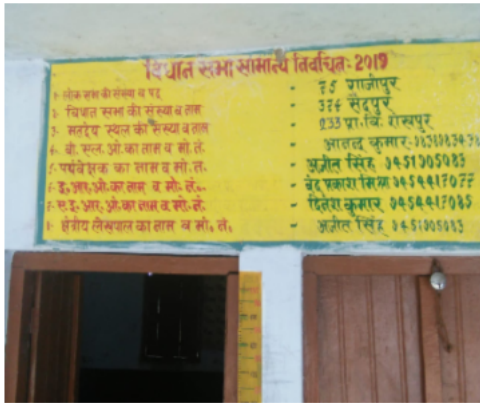 विधान सभा सामान्य निर्वाचन: 2019
१- लोक सभा की संख्या व पद - 75 गाजीपुर
२- विधान सभा की संख्या व नाम - 374 सैदपुर
३- मतदेय स्थल की संख्या व नाम - 233 प्रा. वि.
४- बी. एल. ओ. का नाम व मो. नं. - आनन्द कुमार:
५- पर्यवेक्षक का नाम व मो. नं. - अजीत सिंह 9451905083
६- इ. आर. ओ. का नाम व मो. नं. - प्रकाश मिश्रा 9454417077
७- स. इ. आर. ओ. का नाम व मो. नं. - दिनेश कुमार 9454417085
८- क्षेत्रीय लेखपाल का नाम व मो. नं. - अजीत सिंह 9451905083